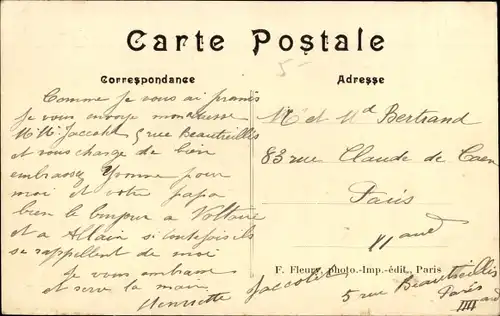 Carte Postale
5-
Correspondance
Adresse
Comme je vous ai promis
je vous envoye mon adresse
Mlle Jaccottet 5 rue Beautreillis
et vous charge de bien
embrasser Yvonne pour
moi et votre papa
bien le bonjour a Voltaire
et a Allain si toutefois ils
se rappellent de moi
Je vous embrasse
et serre la main
Henriette
Mr et Md Bertrand
83 rue Claude de Caen
Paris
11 arrd
F. Fleury, photo.-Imp.-édit., Paris
5 rue Beautreillis
Paris
IIII ard